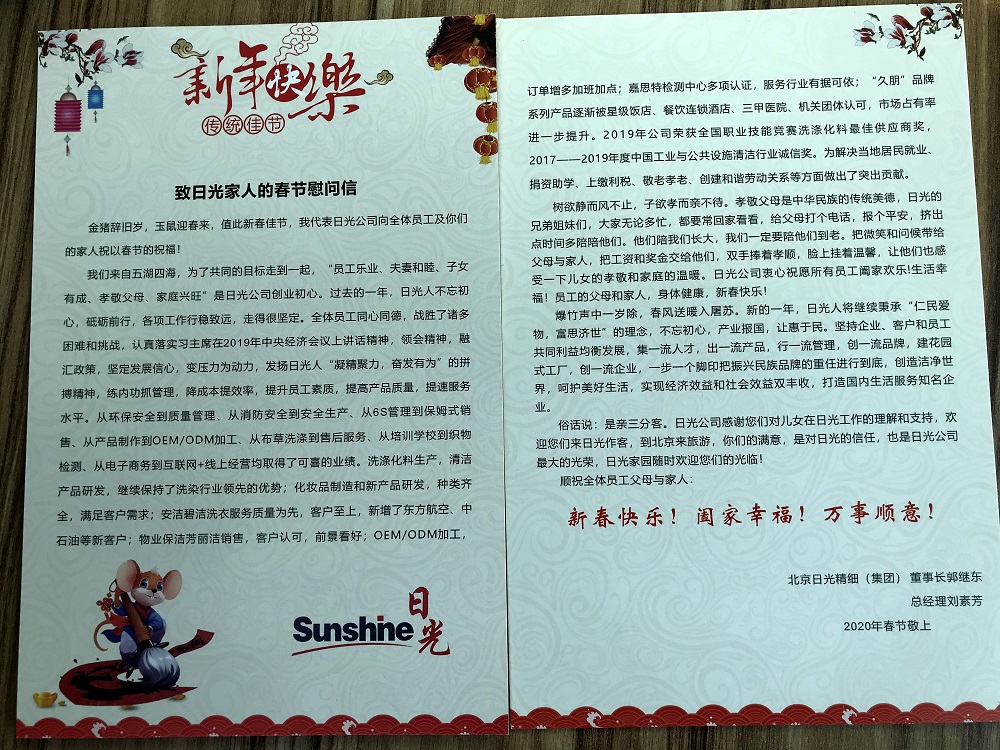 新年快樂
传统佳节
致日光家人的春节慰问信
金猪辞旧岁，玉鼠迎春来，值此新春佳节，我代表日光公司向全体员工及你们
的家人祝以春节的祝福！
我们来自五湖四海，为了共同的目标走到一起，“员工乐业、夫妻和睦、子女
有成、孝敬父母、家庭兴旺”是日光公司创业初心。过去的一年，日光人不忘初
心，砥砺前行，各项工作行稳致远，走得很坚定。全体员工同心同德，战胜了诸多
困难和挑战，认真落实习主席在2019年中央经济会议上讲话精神，领会精神，融
汇政策，坚定发展信心，变压力为动力，发扬日光人“凝精聚力，奋发有为”的拼
搏精神，练内功抓管理，降成本提效率，提升员工素质，提高产品质量，提速服务
水平。从环保安全到质量管理、从消防安全到安全生产、从6S管理到保姆式销
售、从产品制作到OEM/ODM加工、从布草洗涤到售后服务、从培训学校到织物
检测、从电子商务到互联网+线上经营均取得了可喜的业绩。洗涤化料生产，清洁
产品研发，继续保持了洗染行业领先的优势；化妆品制造和新产品研发，种类齐
全，满足客户需求；安洁碧洁洗衣服务质量为先，客户至上，新增了东方航空、中
石油等新客户；物业保洁芳丽洁销售，客户认可，前景看好；OEM/ODM加工，
Sunshine日光
订单增多加班加点；嘉思特检测中心多项认证，服务行业有据可依；“久朋”品牌
系列产品逐渐被星级饭店、餐饮连锁酒店、三甲医院、机关团体认可，市场占有率
进一步提升。2019年公司荣获全国职业技能竞赛洗涤化料最佳供应商奖，
2017——2019年度中国工业与公共设施清洁行业诚信奖。为解决当地居民就业、
捐资助学、上缴利税、敬老孝老、创建和谐劳动关系等方面做出了突出贡献。
树欲静而风不止，子欲孝而亲不待。孝敬父母是中华民族的传统美德，日光的
兄弟姐妹们，大家无论多忙，都要常回家看看，给父母打个电话，报个平安，挤出
点时间多陪陪他们。他们陪我们长大，我们一定要陪他们到老。把微笑和问候带给
父母与家人，把工资和奖金交给他们，双手捧着孝顺，脸上挂着温馨，让他们也感
受一下儿女的孝敬和家庭的温暖。日光公司衷心祝愿所有员工阖家欢乐!生活幸
福！员工的父母和家人，身体健康，新春快乐！
爆竹声中一岁除，春风送暖入屠苏。新的一年，日光人将继续秉承“仁民爱
物，富思济世”的理念，不忘初心，产业报国，让惠于民。坚持企业、客户和员工
共同利益均衡发展，集一流人才，出一流产品，行一流管理，创一流品牌，建花园
式工厂，创一流企业，一步一个脚印把振兴民族品牌的重任进行到底，创造洁净世
界，呵护美好生活，实现经济效益和社会效益双丰收，打造国内生活服务知名企
业。
俗话说：是亲三分客。日光公司感谢您们对儿女在日光工作的理解和支持，欢
迎您们来日光作客，到北京来旅游，你们的满意，是对日光的信任，也是日光公司
最大的光荣，日光家园随时欢迎您们的光临！
顺祝全体员工父母与家人：
新春快乐！阖家幸福！万事顺意！
北京日光精细（集团） 董事长郭继东
总经理刘素芳
2020年春节敬上